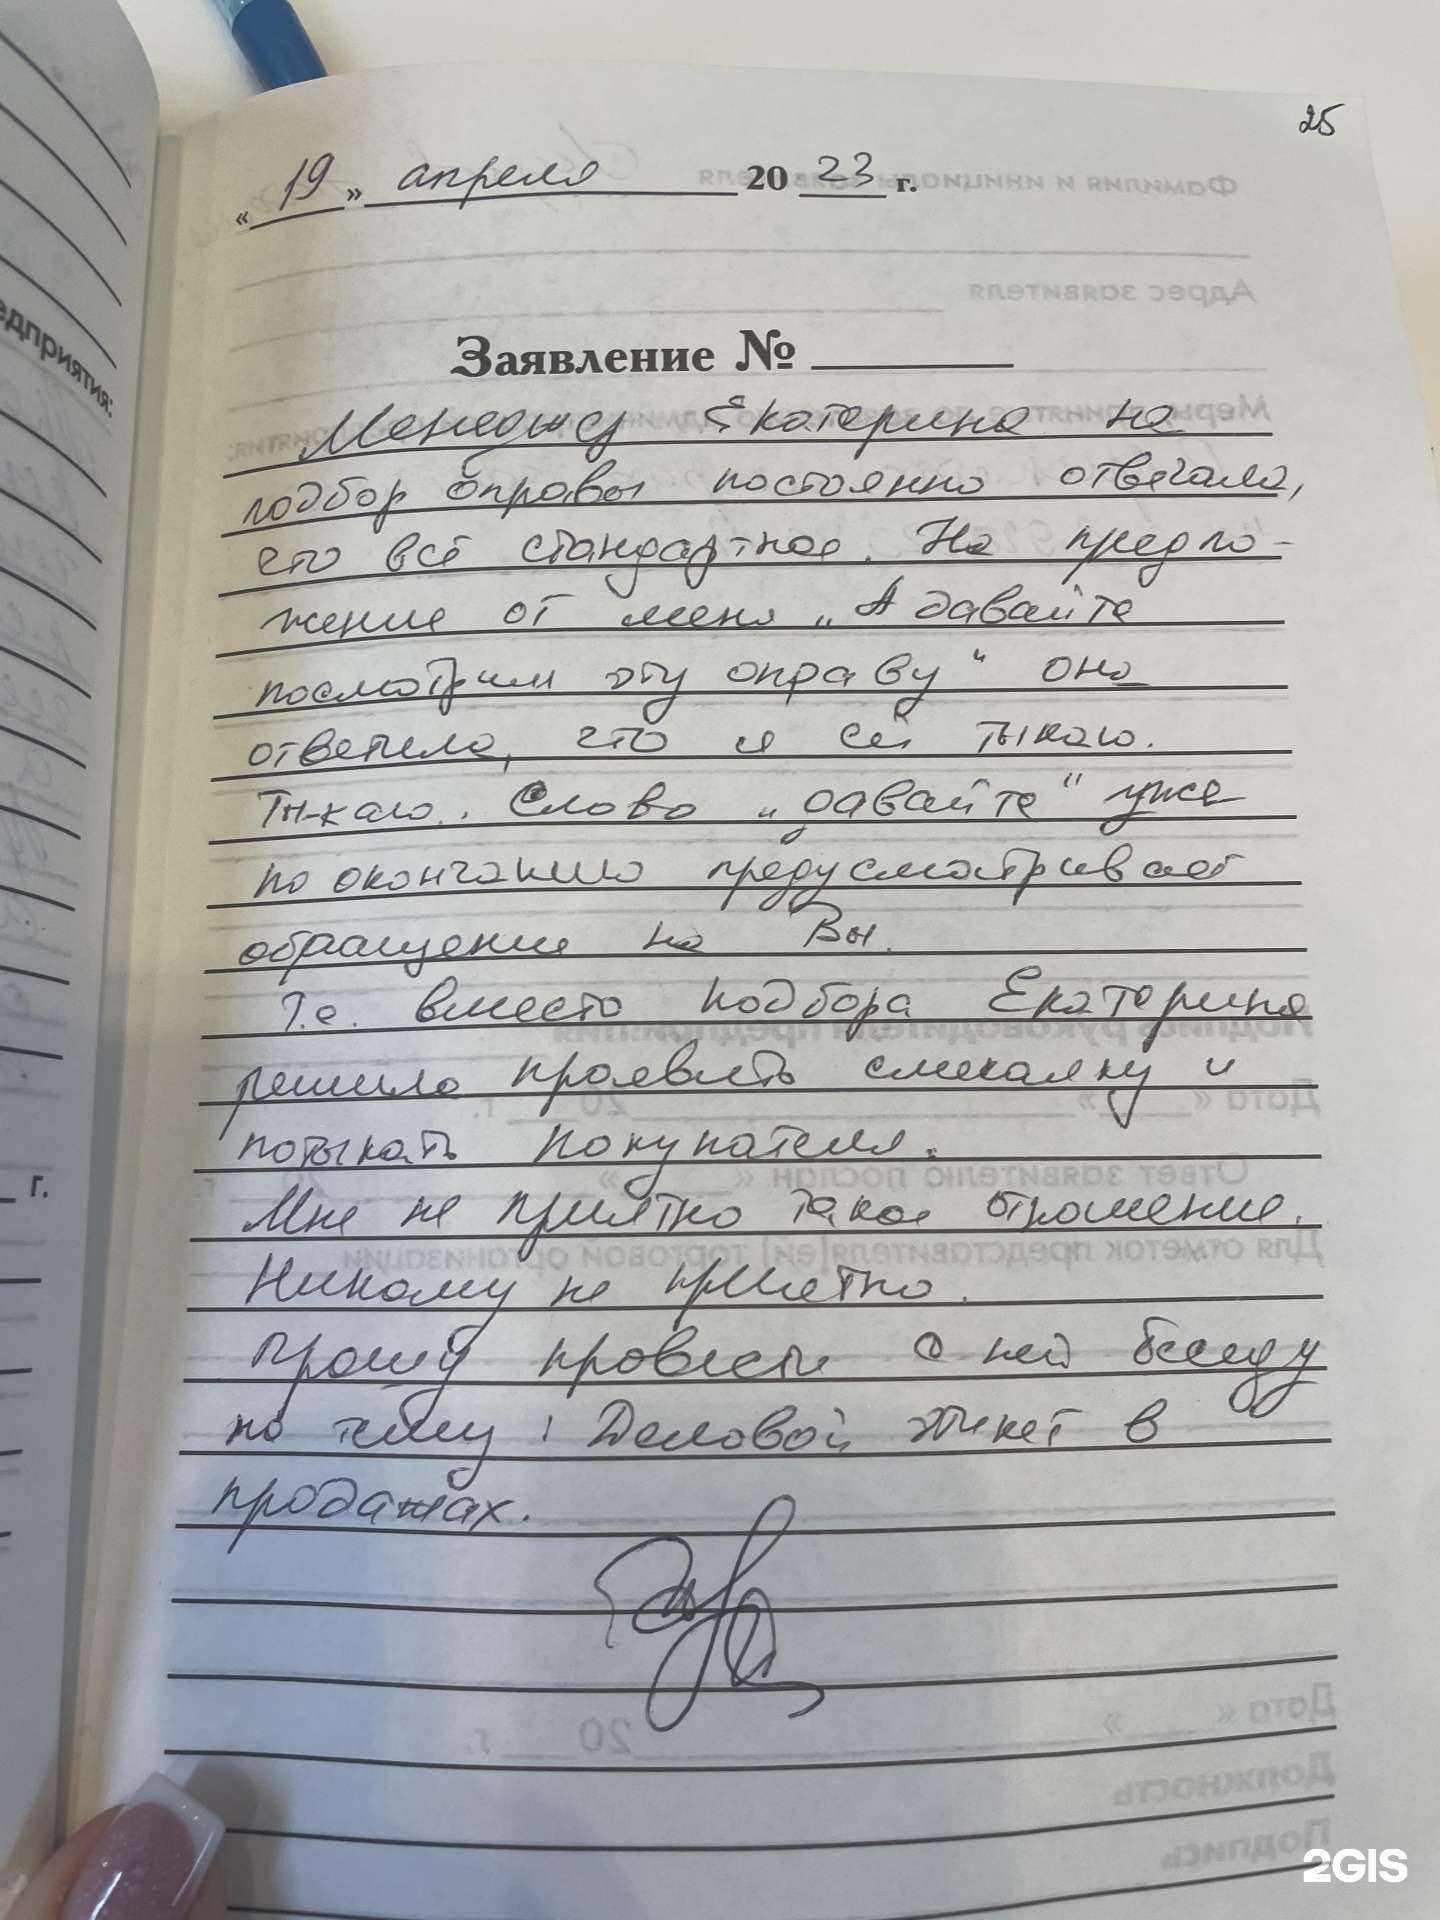 25
« 19 » апреля 20 23 г.
Заявление №
Менеджер Екатерина на
подбор оправы постоянно отвечала,
что всё стандартное. На предло-
жение от меня „А давайте
посмотрим эту оправу“ она
ответила, что я ей тыкаю.
Ты-каю.. Слово „давайте“ уже
по окончанию предусматривает
обращение на Вы.
Т.е. вместо подбора Екатерина
решила проявить смекалку и
потыкать покупателя.
Мне не приятно такое отношение.
Никому не приятно.
Прошу провести с ней беседу
на тему: Деловой этикет в
продажах.
едприятия:
г.
2GIS